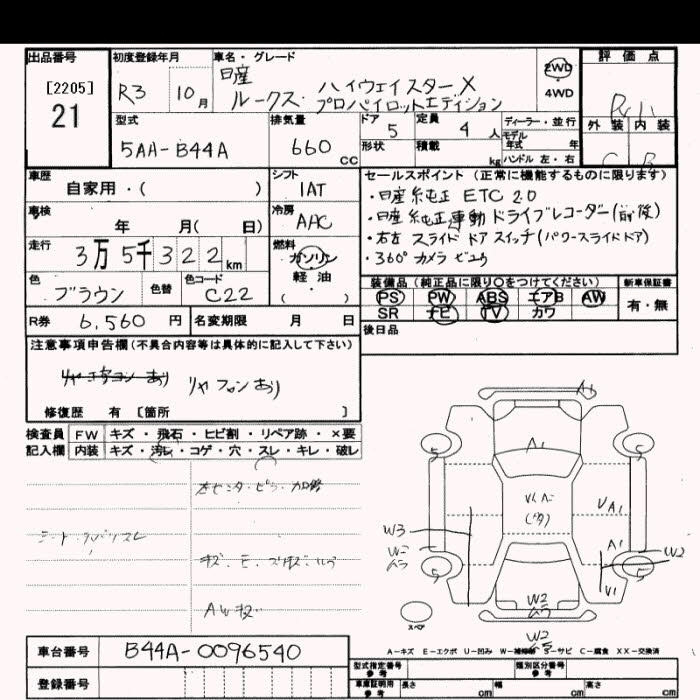 出品番号
[2205]
21
初度登録年月
R3 10月
車名・グレード
日産
ルークス ハイウェイスターX
プロパイロットエディション
2WD
4WD
評価点
外装 内装
C B
型式
5AA-B44A
排気量
660 CC
ドア 5
形状
定員 4 人
積載 kg
ディーラー・並行
モデル
年式 年
ハンドル 左・右
車歴
自家用・( )
シフト
IAT
車検
年 月( 日)
冷房
AAC
走行
3万5千322km
燃料
ガソリン
軽・油
( )
色
ブラウン
色替
色コード
C22
R券 6,560 円
名変期限 月 日
セールスポイント(正常に機能するものに限ります)
・日産純正 ETC 2.0
・日産純正連動ドライブレコーダー(前後)
・右左 スライドドアスイッチ(パワースライドドア)
・360°カメラ ビュウ
装備品(純正品に限り○をつけてください)
PS PW ABS エアB AW
SR ナビ TV カワ
新車保証書
有・無
後日品
注意事項申告欄(不具合内容等は具体的に記入して下さい)
リヤエアコンあり リヤフロンあり
修復歴 有 [箇所 ]
検査員
記入欄
FW キズ・飛石・ヒビ割・リペア跡・×要
内装 キズ・汚レ・コゲ・穴・スレ・キレ・破レ
AWキズ
A1
A1
5
5
5
5
W3
V A1
A1
W2
V1
W2
ムラ
W2
ムラ
スペア
A-キズ E-エクボ U-凹み W-補修跡 S-サビ C-腐食 XX-交換済
車台番号
B44A-0096540
登録番号
型式指定番号
参考
類別区分番号
参考
車庫証明用
参考
長さ cm 幅 cm 高さ cm